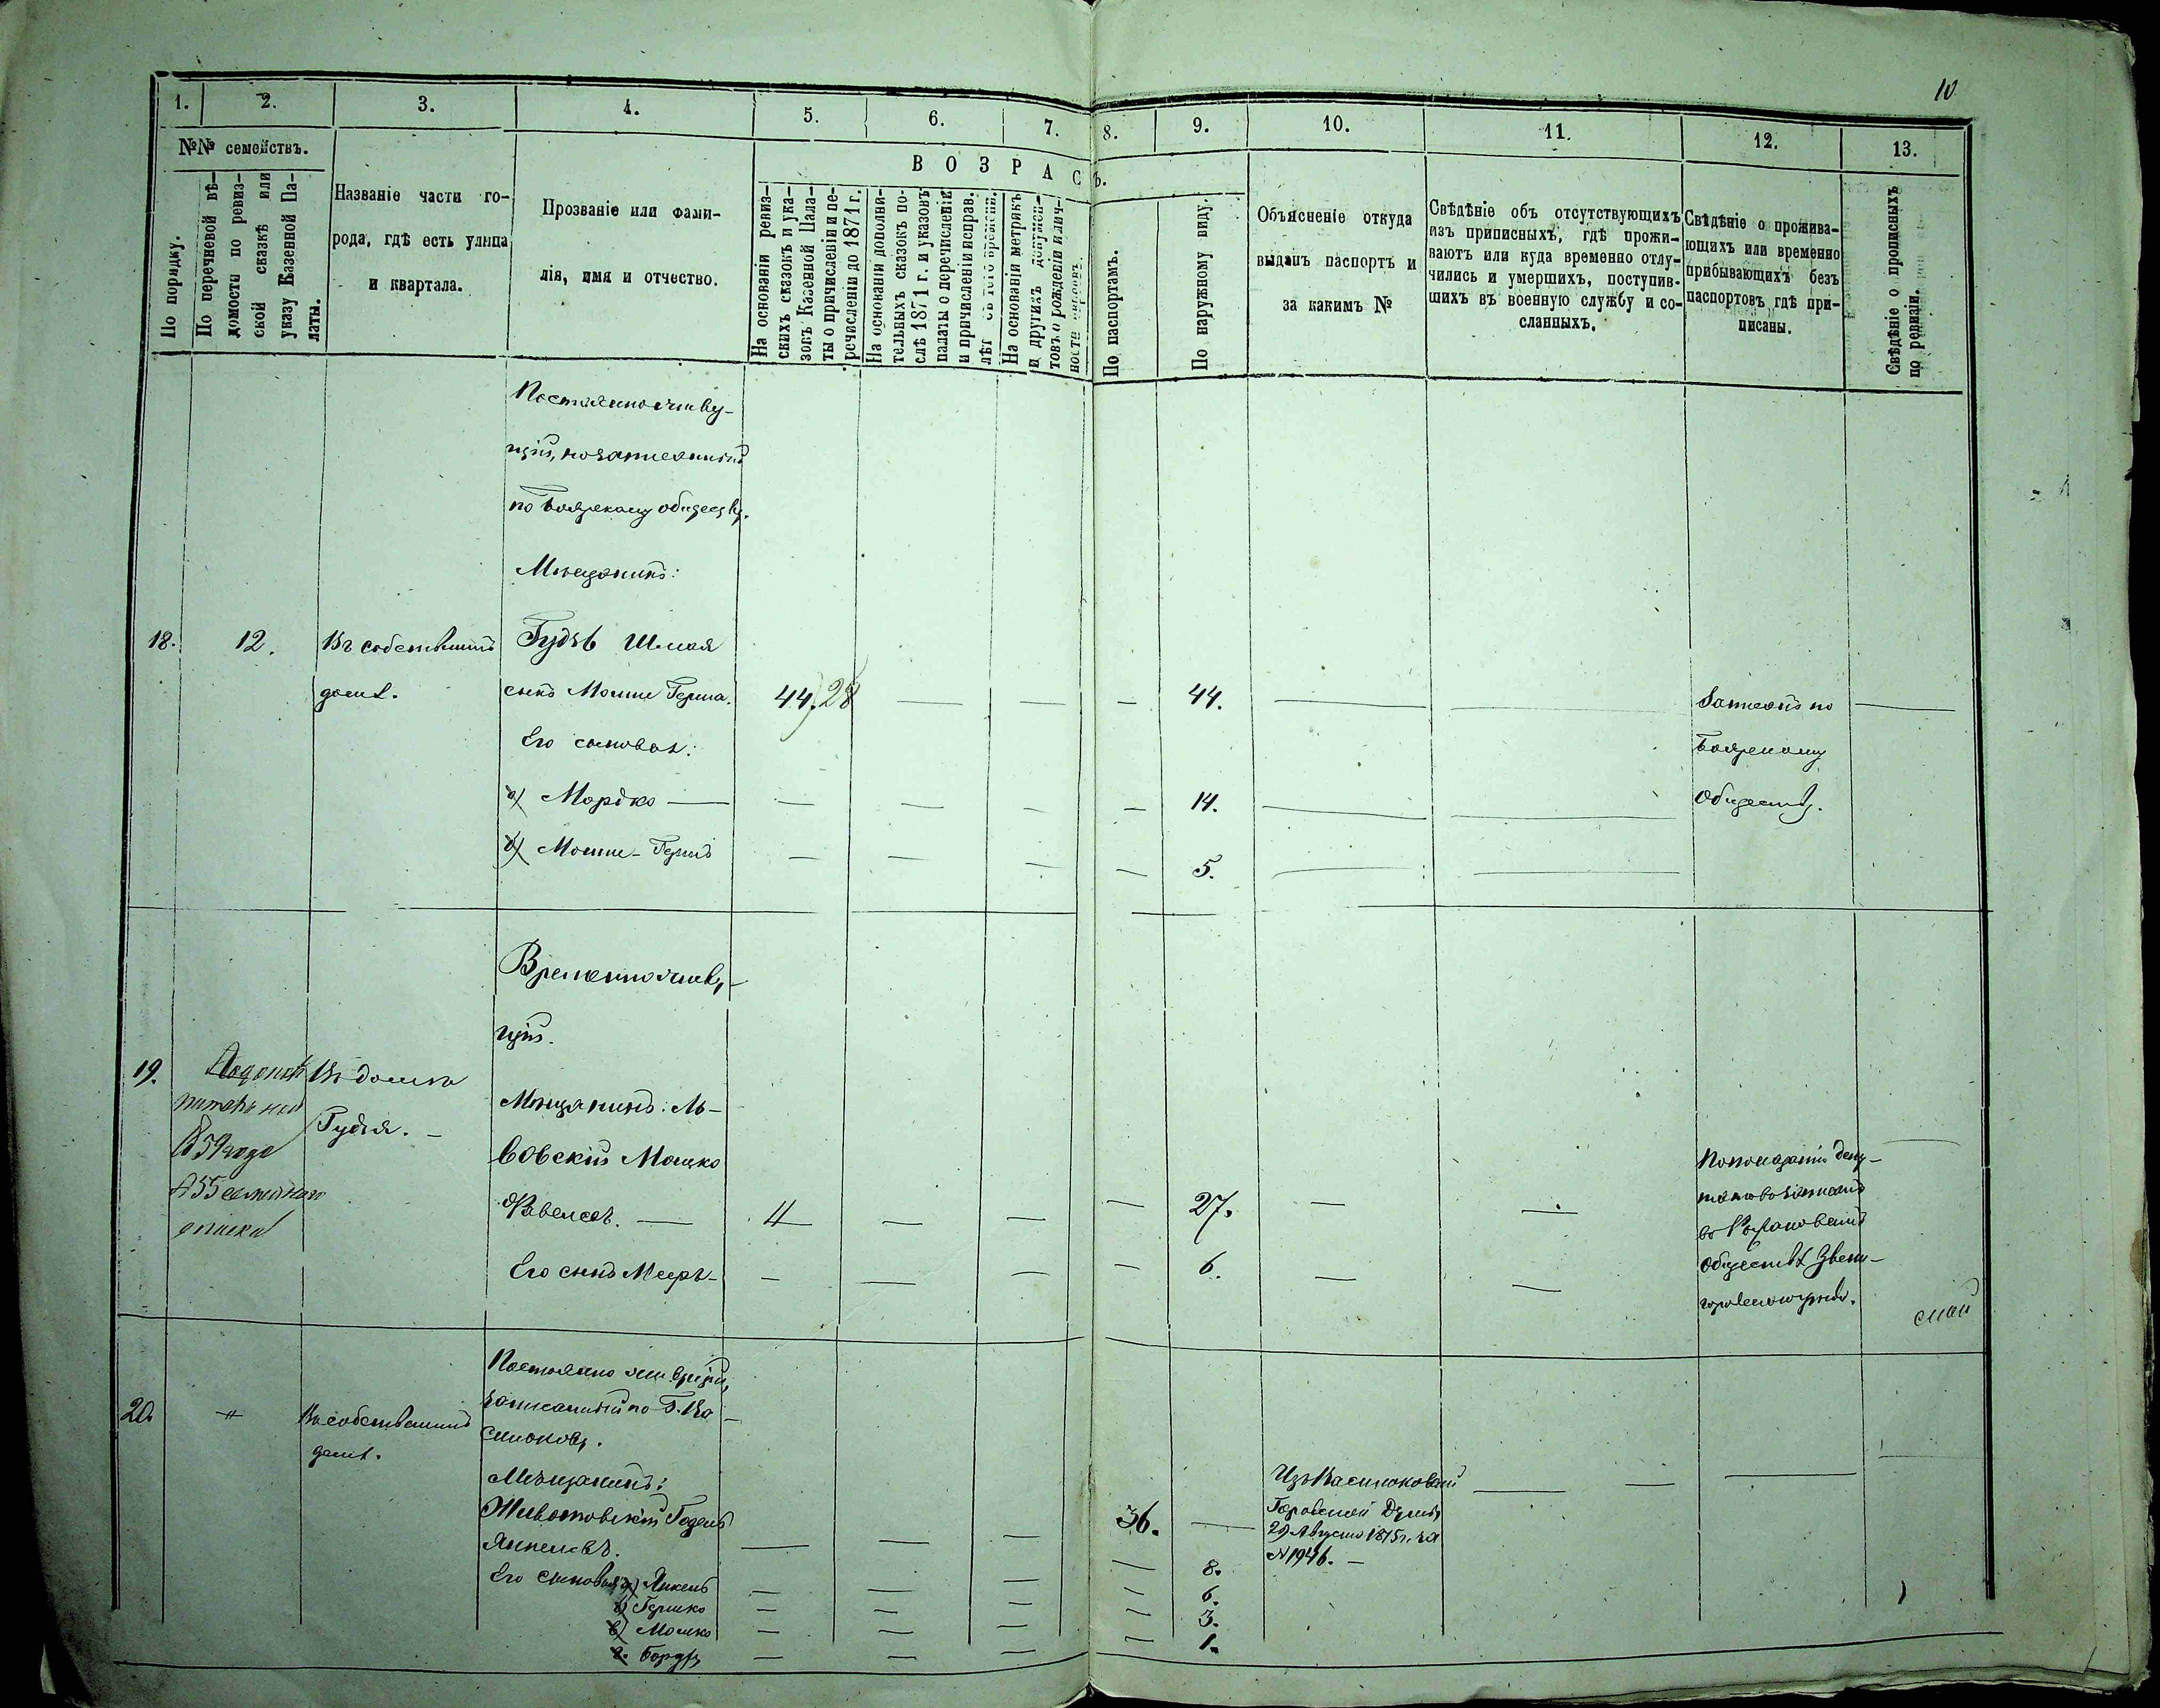 10
1. 2. 3. 4. 5. 6. 7. 8. 9. 10. 11. 12. 13.
№№ семействъ.
По порядку.
По перечневой вѣ-
домости по ревиз-
ской сказкѣ или
указу Казенной Па-
латы.
Названіе части го-
рода, гдѣ есть улица
и квартала.
Прозваніе или фами-
лія, имя и отчество.
ВОЗРАСТЪ.
На основаніи ревиз-
скихъ сказокъ и ука-
зокъ Казенной Пала-
ты о причисленіи и пе-
речисленіи до 1871 г.
На основаніи дополни-
тельныхъ сказокъ по-
слѣ 1871 г. и указовъ
палаты о перечисленіи
и причисленіи исправ.
лѣт съ того времени.
На основаніи метрикъ
и другихъ докумен-
товъ о рожденіи и лич-
ности
По паспортамъ.
По наружному виду.
Объясненіе откуда
выданъ паспортъ и
за какимъ №
Свѣдѣніе объ отсутствующихъ
изъ приписныхъ, гдѣ прожи-
ваютъ или куда временно отлу-
чились и умершихъ, поступив-
шихъ въ военную службу и со-
сланныхъ.
Свѣдѣніе о прожива-
ющихъ или временно
прибывающихъ безъ
паспортовъ гдѣ при-
писаны.
Свѣдѣніе о прописныхъ
по ревизіи.
Постоянно живу-
щій, но записанный
по Боярскому обществу.
Мѣщанинъ:
18. 12. Въ собственномъ Гудзь Шмая
домѣ. сынъ Мошие Герша. 44. 28 — — — 44. — — Записанъ по —
Его сыновья: Боярскому
а) Мордко — — — — — 14. — — Обществу.
б) Мошие-Гершъ — — — — 5. — —
Временно живу-
щій.
19. Въ домѣ
Гудзя. —
Мѣщанинъ: Ль-
вовскій Мошко
59 года
55 семейнаго
списка
4 — — — 27. — —
Его сынъ Мееръ — — — — — 6. — —
По показанію депу-
татовъ записанъ
въ
Обществѣ Звени-
городскаго уѣзда.
20. " Въ собственномъ
домѣ.
Постоянно живущій,
записанный по Г. Ва-
силькову.
Мѣщанинъ:
Животовскій Годель
Янкелевъ. — — — 36. —
Изъ Васильковской
Городской Думы
29 Августа 1875 г. за
№ 1946. —
Его сыновья: а) Янкель — — — — 8.
б) Гершко — — — — 6.
в) Мошко — — — — 3.
г. — — — — 1.